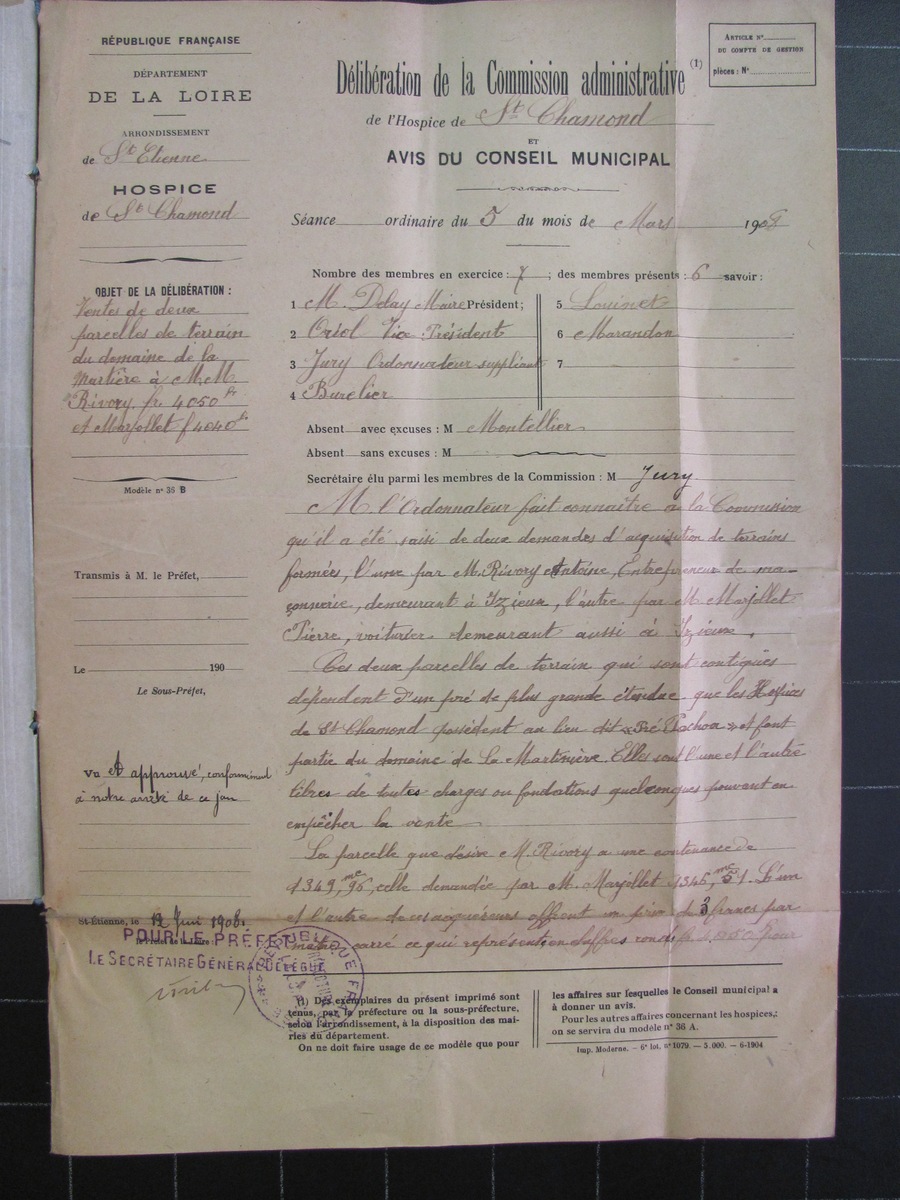 RÉPUBLIQUE FRANÇAISE
DÉPARTEMENT
DE LA LOIRE
ARRONDISSEMENT
de St Etienne
HOSPICE
de St Chamond
OBJET DE LA DÉLIBÉRATION :
Ventes de deux
parcelles de terrain
du domaine de la
à M.M.
Rivory fr. 4050 fr
et Marjollet f 4040 fr
Modèle n° 36 B
Transmis à M. le Préfet,
Le 190
Le Sous-Préfet,
Vu et approuvé, conformément
à notre arrêté de ce jour
St-Étienne, le 12 Juin 1908
Le Préfet de la Loire
POUR LE PRÉFET
LE SECRÉTAIRE GÉNÉRAL DÉLÉGUÉ
ARTICLE N°
DU COMPTE DE GESTION
pièces : N°
Délibération de la Commission administrative (1)
de l'Hospice de St Chamond
ET
AVIS DU CONSEIL MUNICIPAL
Séance ordinaire du 5 du mois de Mars 1908
Nombre des membres en exercice : 7 ; des membres présents : 6 savoir :
1 M. Delay Maire Président ;
2 Oriol Vice-Président
3 Jury Ordonnateur suppléant
4 Burelier
5
6 Marandon
7
Absent avec excuses : M Montellier
Absent sans excuses : M
Secrétaire élu parmi les membres de la Commission : M Jury
M. l'Ordonnateur fait connaître à la Commission
qu'il a été saisi de deux demandes d'acquisition de terrains
formées, l'une par M. Rivory Antoine, Entrepreneur de ma-
çonnerie, demeurant à Izieux, l'autre par M. Marjollet
Pierre, voiturier demeurant aussi à Izieux.
Ces deux parcelles de terrain qui sont contiguës
dépendent d'un pré de plus grande étendue que les Hospices
de St Chamond possèdent au lieu dit « Pré » et font
partie du domaine de La Martinière. Elles sont l'une et l'autre
libres de toutes charges ou fondations quelconques pouvant en
empêcher la vente
La parcelle que désire M. Rivory a une contenance de
1349,mc96, celle demandée par M. Marjollet 1346,mc51. L'un
et l'autre de ces acquéreurs offrent un prix de 3 francs par
mètre carré ce qui représente en chiffres ronds fr. 4.050 pour
(1) Des exemplaires du présent imprimé sont
tenus, par la préfecture ou la sous-préfecture,
selon l'arrondissement, à la disposition des mai-
ries du département.
On ne doit faire usage de ce modèle que pour
les affaires sur lesquelles le Conseil municipal a
à donner un avis.
Pour les autres affaires concernant les hospices,
on se servira du modèle n° 36 A.
Imp. Moderne. — 6e lot. n° 1079. — 5.000. — 6-1904